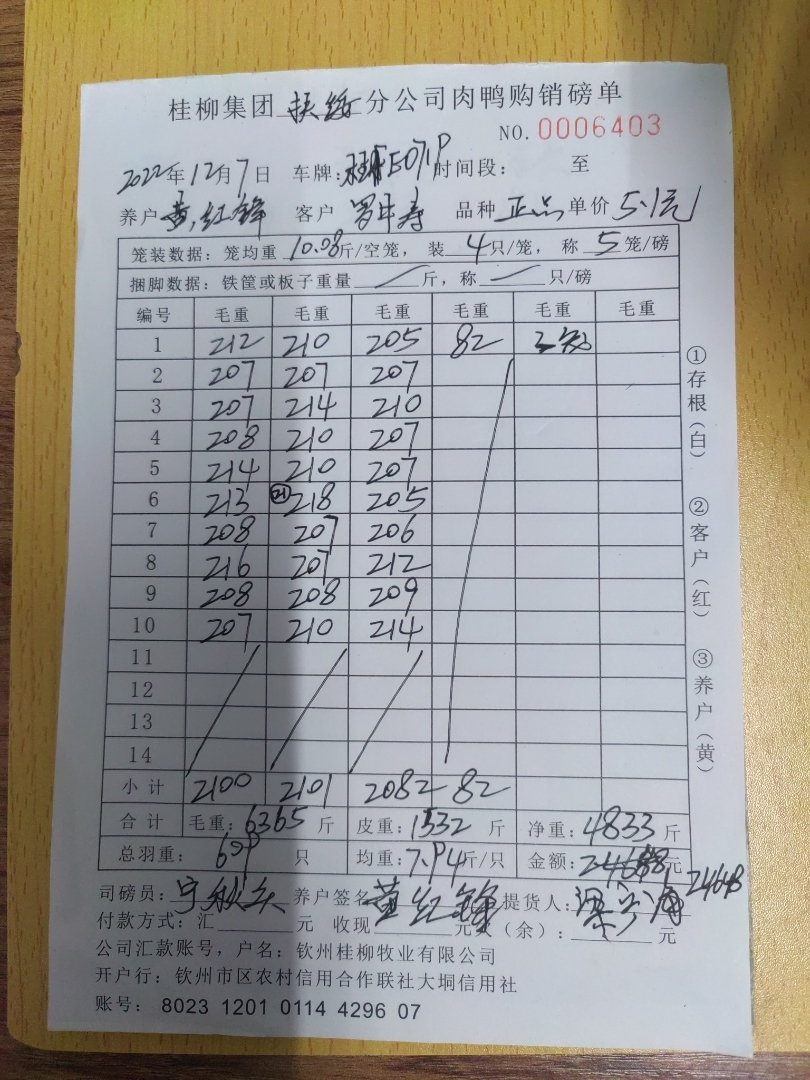 桂柳集团扶绥分公司肉鸭购销磅单
NO.0006403
2022年12月7日 车牌: 时间段: 至
养户黄红锋 客户 罗 寿 品种 正品 单价 5.1元
笼装数据:笼均重 10.08斤/空笼,装 4 只/笼,称 5 笼/磅
捆脚数据:铁筐或板子重量 / 斤,称 / 只/磅
编号 毛重 毛重 毛重 毛重 毛重 毛重
1 212 210 205 82
2 207 207 207
3 207 214 210
4 208 210 207
5 214 210 207
6 213 21 218 205
7 208 207 206
8 216 207 212
9 208 208 209
10 207 210 214
11
12
13
14
小计 2100 2101 2082 82
合计 毛重:6365斤 皮重:1532斤 净重:4833斤
总羽重: 只 均重:7.94斤/只 金额: 元
24648
司磅员: 养户签名 黄红锋 提货人:
付款方式:汇 元 收现 元 欠(余): 元
公司汇款账号,户名:钦州桂柳牧业有限公司
开户行:钦州市区农村信用合作联社大垌信用社
账号: 8023 1201 0114 4296 07
①存根(白)
②客户(红)
③养户(黄)